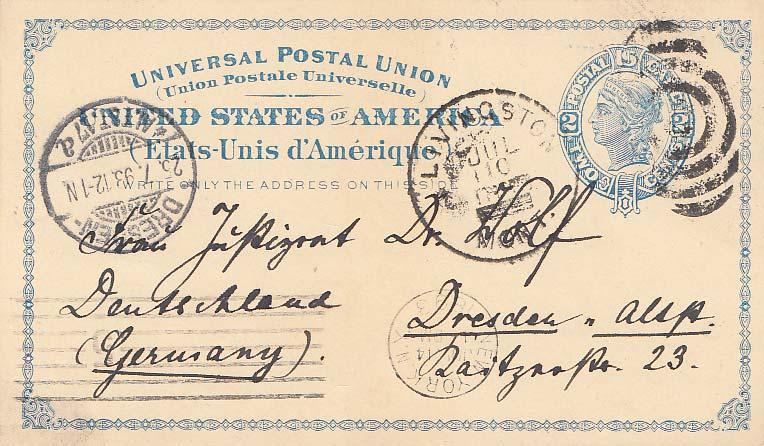 UNIVERSAL POSTAL UNION
(Union Postale Universelle)
UNITED STATES OF AMERICA
(Etats-Unis d'Amérique)
WRITE ONLY THE ADDRESS ON THIS SIDE
U.S. POSTAL CARD
2 TWO CENTS 2
LIVINGSTON
JUL
10
MON
DRESDEN-
25.7.93.12-1N.
ALTST.
NEW YORK
14
Frau Justizrat Dr. Wolf
Deutschland
(Germany).
Dresden - Altst.
Raitzerstr. 23.